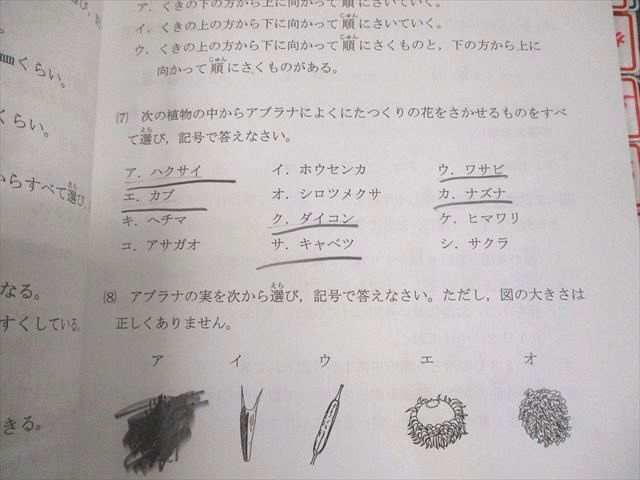 ア．くきの下の方から上に向かって順にさいていく。
イ．くきの上の方から下に向かって順にさいていく。
ウ．くきの上の方から下に向かって順にさくものと，下の方から上に
向かって順にさくものがある。
⑺ 次の植物の中からアブラナによくにたつくりの花をさかせるものをすべ
て選び，記号で答えなさい。
ア．ハクサイ イ．ホウセンカ ウ．ワサビ
エ．カブ オ．シロツメクサ カ．ナズナ
キ．ヘチマ ク．ダイコン ケ．ヒマワリ
コ．アサガオ サ．キャベツ シ．サクラ
⑻ アブラナの実を次から選び，記号で答えなさい。ただし，図の大きさは
正しくありません。
ア イ ウ エ オ
くらい。
くらい。
からすべて選び，
なる。
すくしている。
きる。